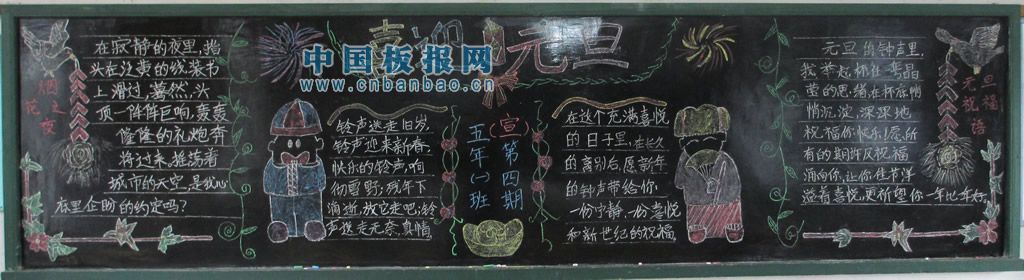 喜迎元旦
中国板报网
www.cnbanbao.cn
烟花之夜
在寂静的夜里,指
头在泛黄的线装书
上滑过,蓦然,头
顶一阵阵巨响,轰轰
隆隆的礼炮奔
将过来,摇荡着
城市的天空,是我心
底里企盼的约定吗?
铃声送走旧岁,
铃声迎来新春,
快乐的铃声,响
彻雪野;残年下
消逝,放它走吧;铃
声送走无奈,真情,
(宣)第四期
五年(一)班
在这个充满喜悦
的日子里,在长久
的离别后,愿新年
的钟声带给你,
一份宁静,一份喜悦
和新世纪的祝福,
元旦祝福语
元旦的钟声里,
我举起杯,在
莹的思绪,在杯底悄
悄沉淀,深深地
祝福你快乐!愿所
有的期许及祝福
涌向你,让你佳节洋
溢着喜悦,更祈望你一年比一年好